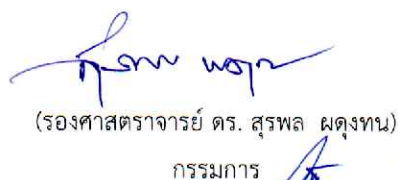 (รองศาสตราจารย์ ดร. สุรพล ผดุงทน)
กรรมการ